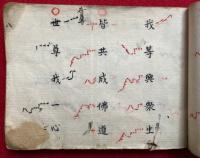 我等與衆生
皆共成佛道
尊
世尊我一心